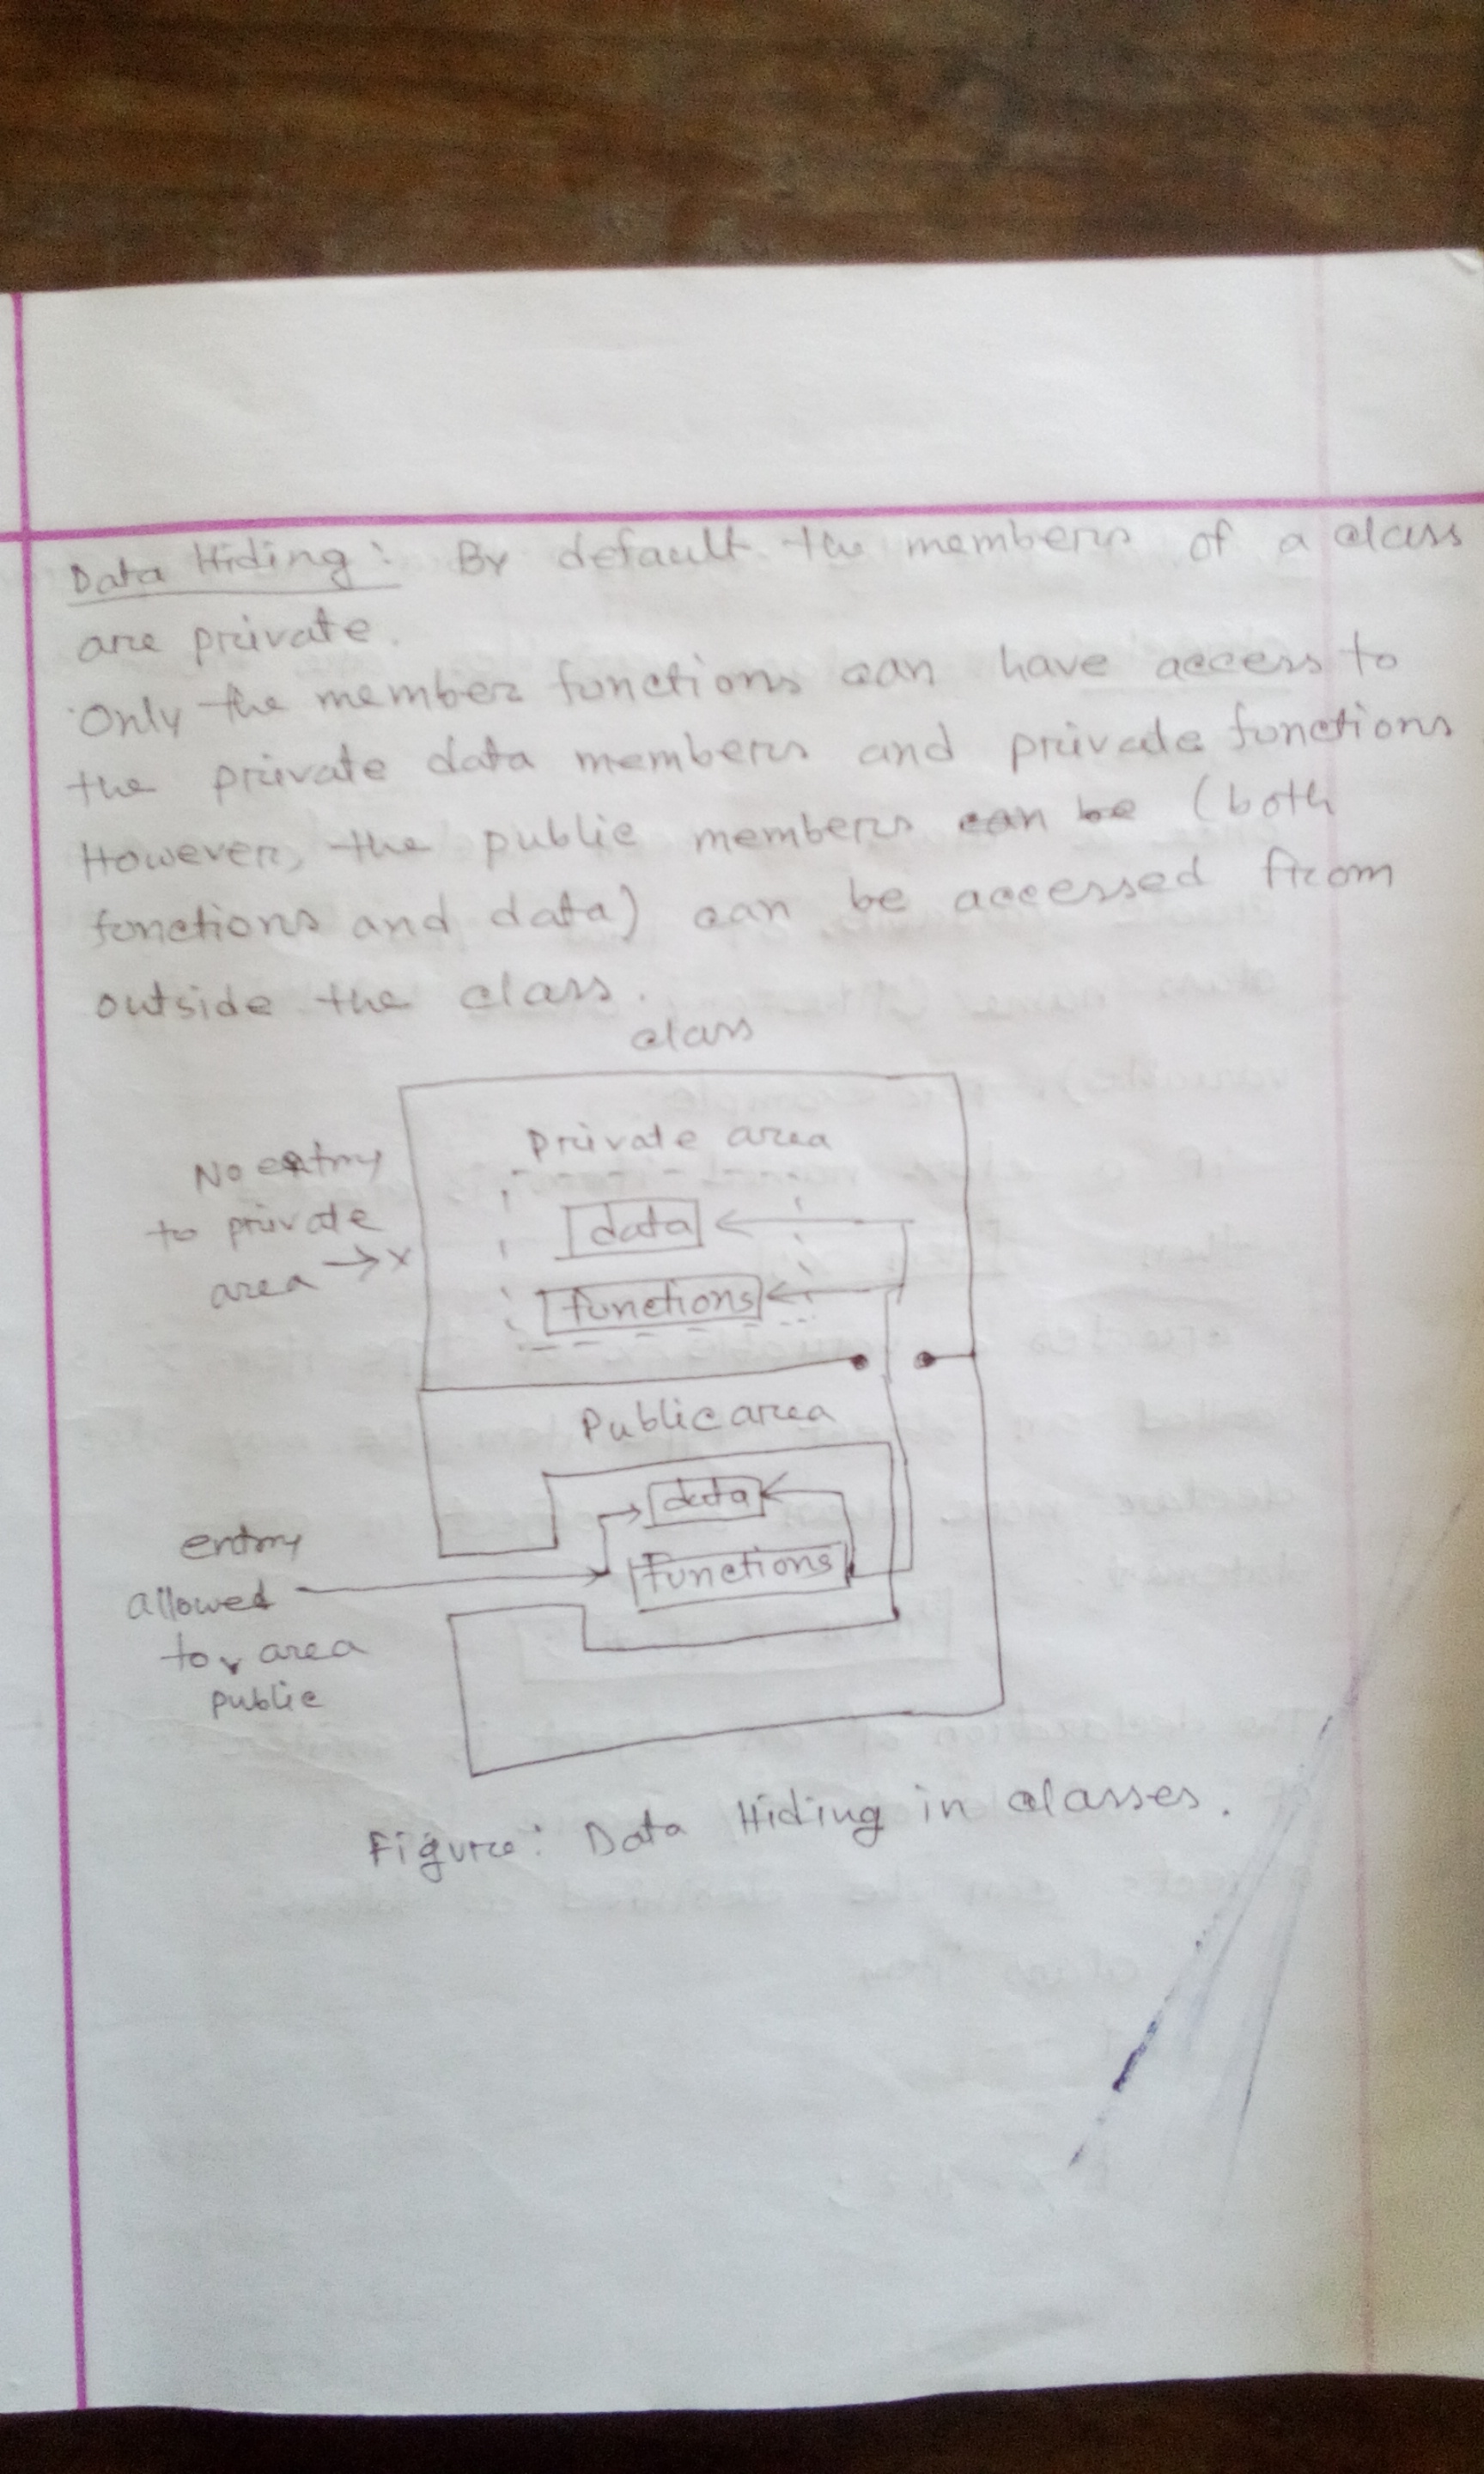 Data Hiding: By default the members of a class
are private.
Only the member functions can have access to
the private data members and private functions
However, the public members can be (both
functions and data) can be accessed from
outside the class.
class
Private area
No entry
to private
area → x
data
functions
Public area
data
functions
entry
allowed
to area
public
Figure: Data Hiding in classes.